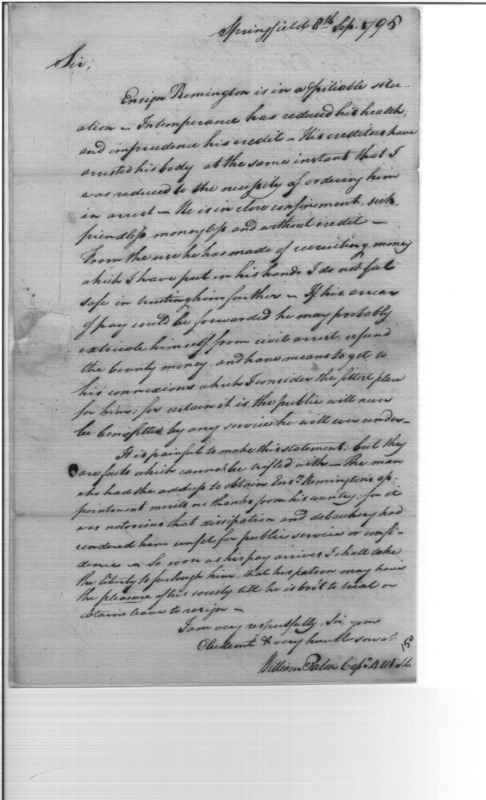 Springfield 8th Sep. 1795
Sir,
Ensign Remington is in a pitiable situ-
ation – Intemperance has reduced his health,
and imprudence his credit – His creditors have
arrested his body at the same instant that I
was reduced to the necessity of ordering him
in arrest – He is in close confinement, sick,
friendless moneyless and without credit –
From the use he has made of recruiting money
which I have put in his hands I do not feel
safe in trusting him further – If his arrears
of pay could be forwarded he may probably
extricate himself from civil arrest, refund
the bounty money, and have means to get to
his connexions which I consider the fittest place
for him; for certain it is, the public will never
be benefitted by any service he will ever render –
It is painful to make this statement; but they
are facts which cannot be trifled with – The man
who had the address to obtain Ens. Remington's ap-
pointment merits no thanks from his country; for it
was notorious that dissipation and debauchery had
rendered him unfit for public service or confi-
dence – So soon as his pay arrives I shall take
the liberty to furlough him, that his patron may have
the pleasure of his society till he is bro't to trial or
obtains leave to resign –
I am very respectfully Sir, your
Obedient & very humble servt.
William Eaton Capt.